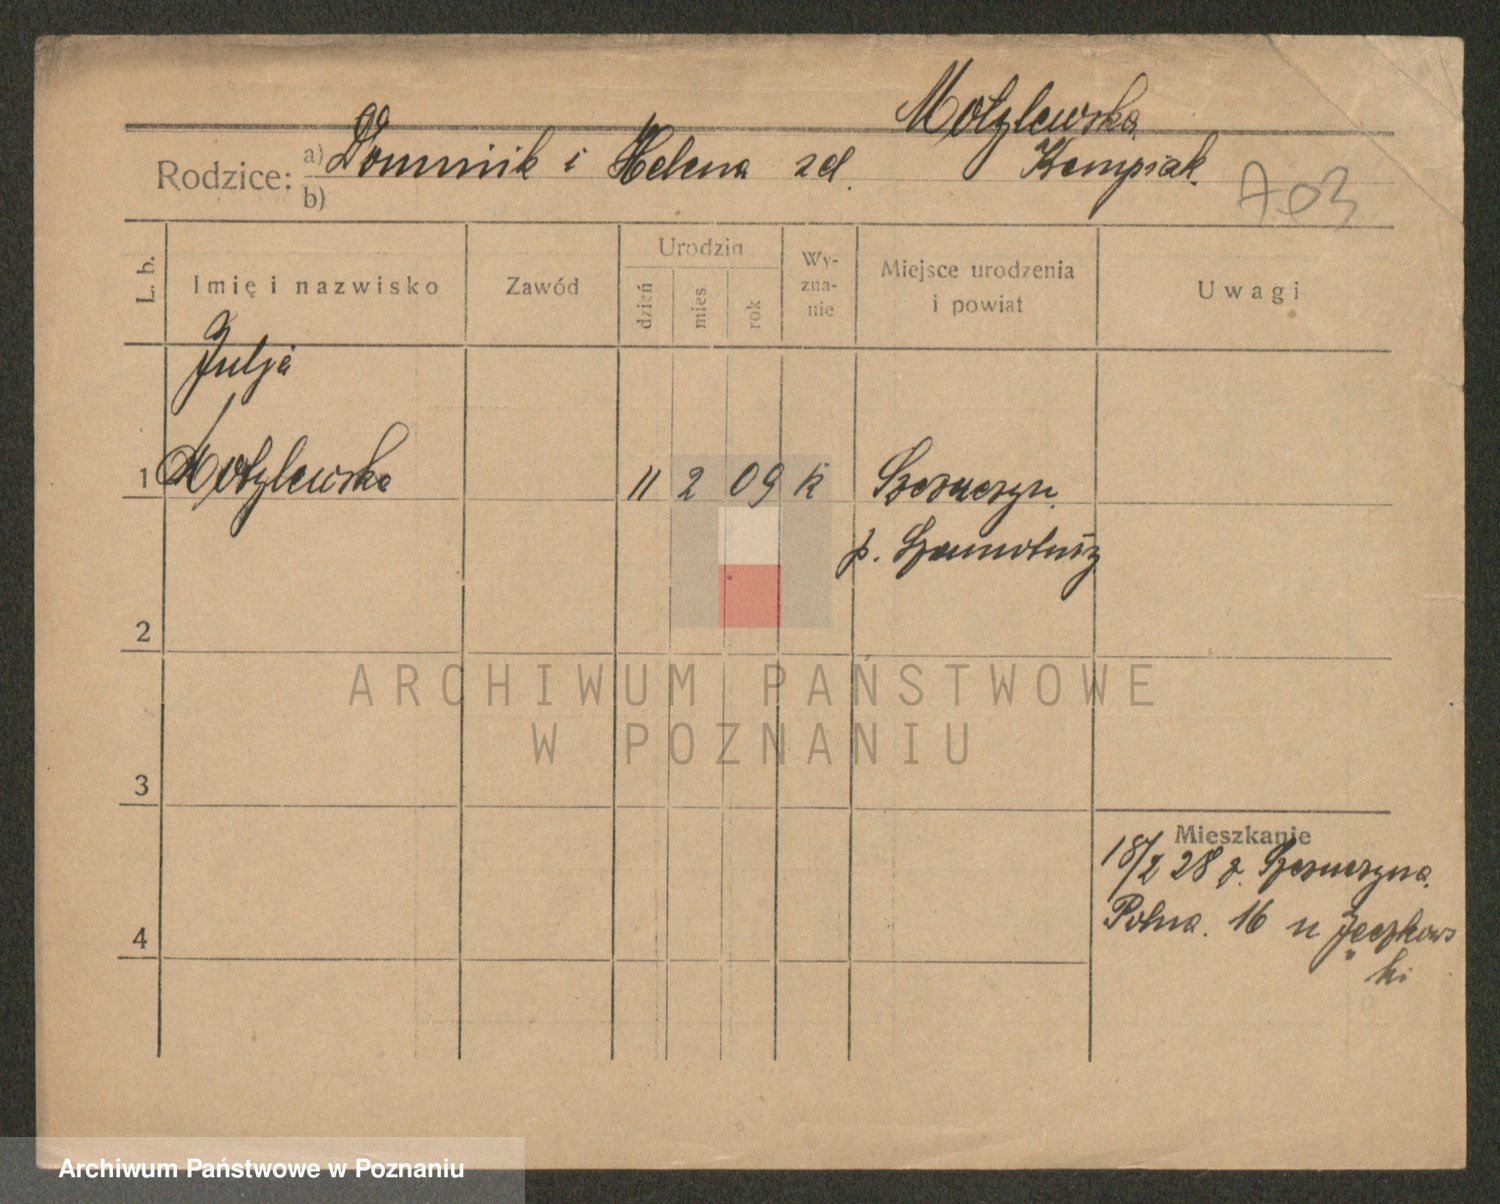 Motylewska
Rodzice: a) Dominik i Helena zd. Kempiak.
b)
703
L. b.
Imię i nazwisko
Zawód
Urodzin
dzień
mies.
rok
Wy-
zna-
nie
Miejsce urodzenia
i powiat
Uwagi
Julja
1 Motylewska 11 2 09 k
p. Szamotuły
2
3
4
Mieszkanie
18/2 28 z
Polna. 16 u Jęczkows
ki
ARCHIWUM PAŃSTWOWE
W POZNANIU
Archiwum Państwowe w Poznaniu